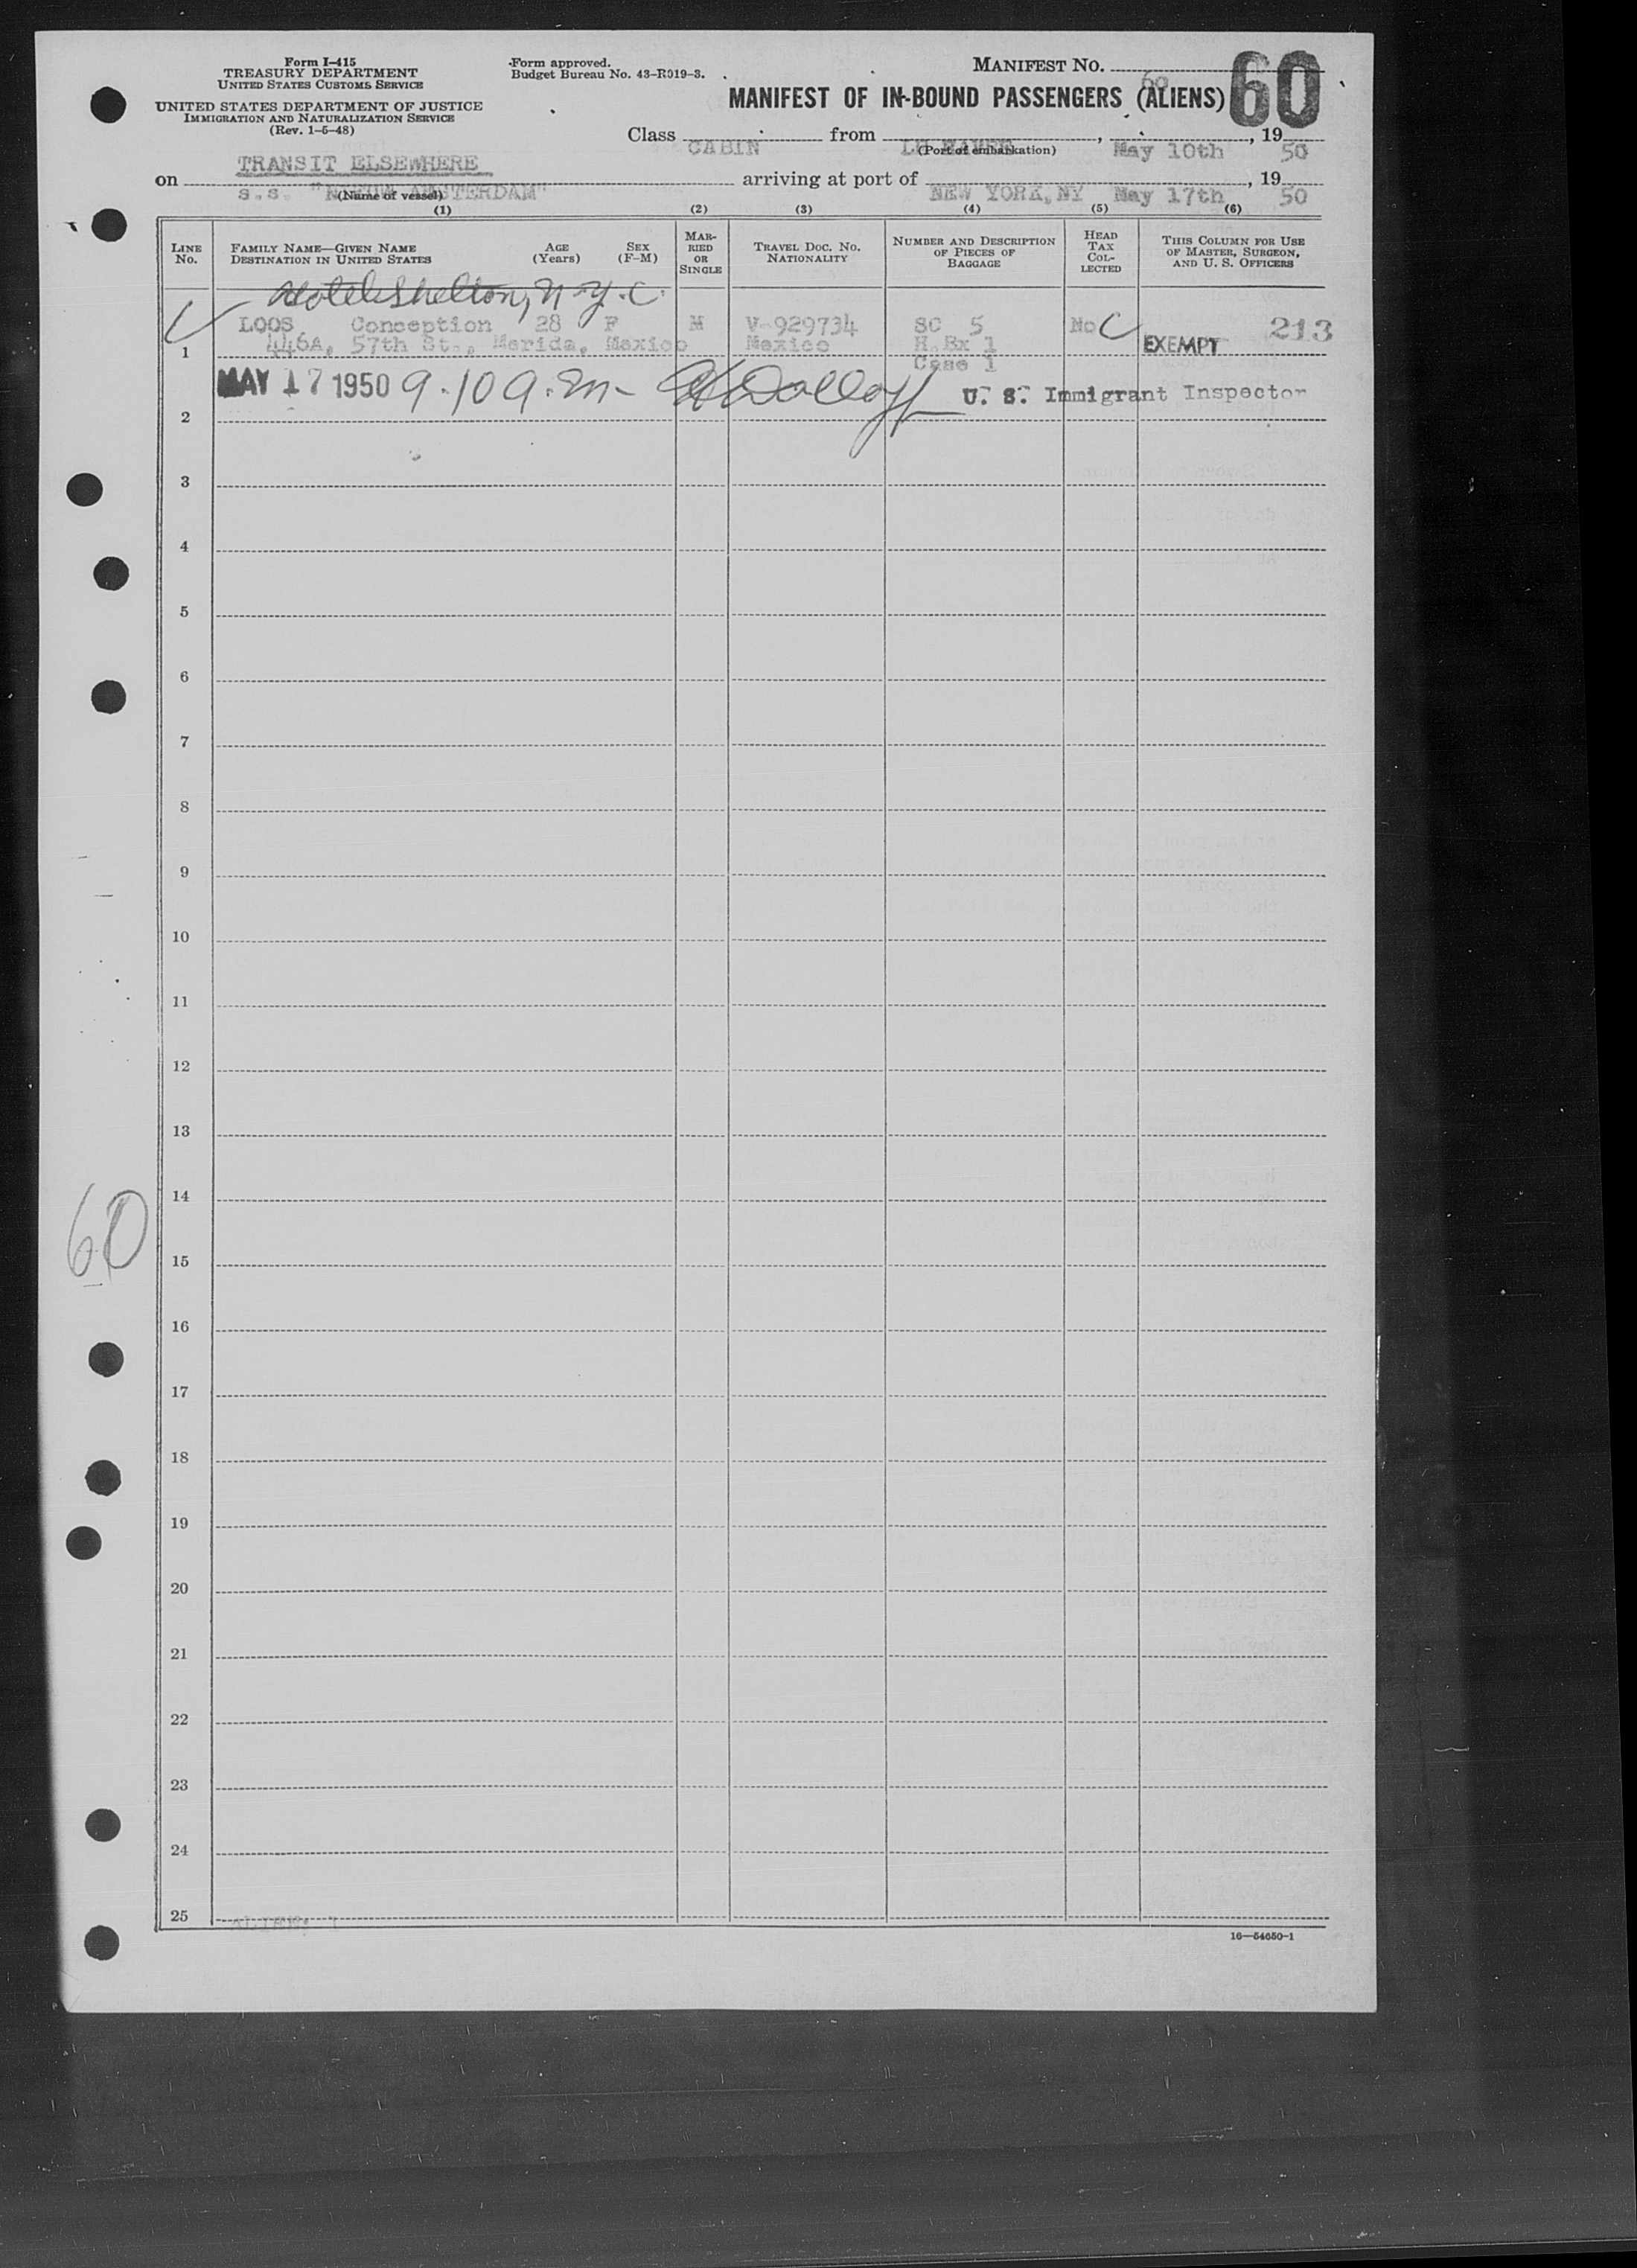 Form I-415
TREASURY DEPARTMENT
UNITED STATES CUSTOMS SERVICE
UNITED STATES DEPARTMENT OF JUSTICE
IMMIGRATION AND NATURALIZATION SERVICE
(Rev. 1-5-48)
Form approved.
Budget Bureau No. 43-R019-3.
MANIFEST NO. 60
60
MANIFEST OF IN-BOUND PASSENGERS (ALIENS)
Class CABIN from LE HAVRE, May 10th, 19 50
(Port of embarkation)
TRANSIT ELSEWHERE
on s.s. "NIEUW AMSTERDAM" arriving at port of NEW YORK, NY May 17th, 19 50
(Name of vessel)
(1) (2) (3) (4) (5) (6)
LINE No. FAMILY NAME—GIVEN NAME DESTINATION IN UNITED STATES AGE (Years) SEX (F-M) MARRIED OR SINGLE TRAVEL DOC. NO. NATIONALITY NUMBER AND DESCRIPTION OF PIECES OF BAGGAGE HEAD TAX COLLECTED THIS COLUMN FOR USE OF MASTER, SURGEON, AND U. S. OFFICERS
Hotel Shelton, N.Y.C.
LOOS, Conception 28 F M V-929734 SC 5 No C 213
1 446A, 57th St., Merida, Mexico Mexico H.Bx 1 EXEMPT
Case 1
MAY 17 1950 9.10 a.m. U. S. Immigrant Inspector
2
3
4
5
6
7
8
9
10
11
12
13
14
60
15
16
17
18
19
20
21
22
23
24
25 ALIEN: 1
16—54650-1